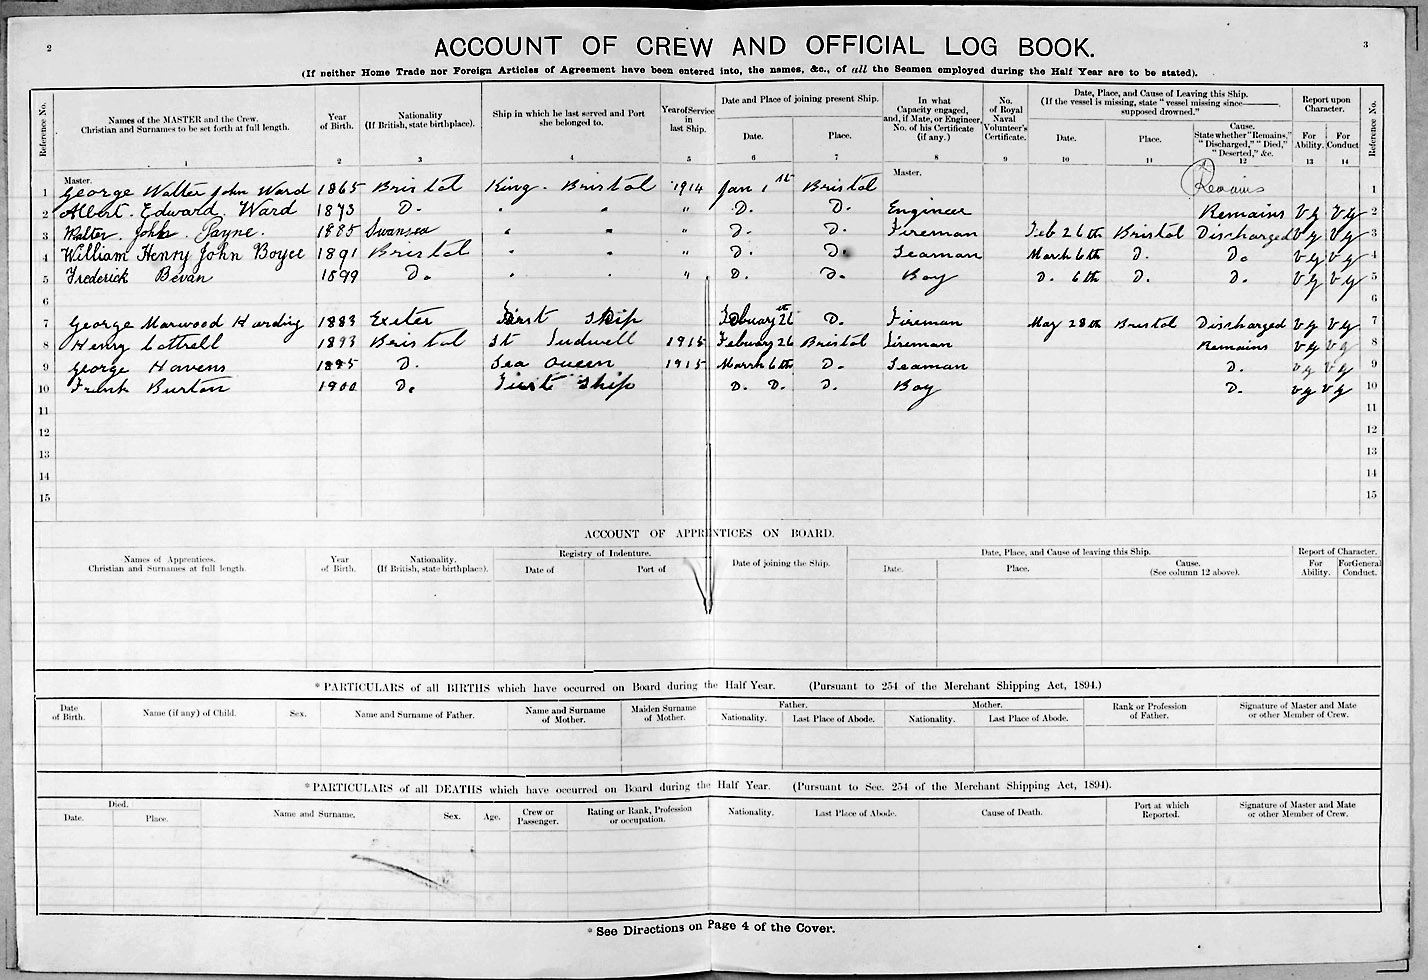 2
3
ACCOUNT OF CREW AND OFFICIAL LOG BOOK.
(If neither Home Trade nor Foreign Articles of Agreement have been entered into, the names, &c., of all the Seamen employed during the Half Year are to be stated).
Reference No. | Names of the MASTER and the Crew. Christian and Surnames to be set forth at full length. | Year of Birth. | Nationality (If British, state birthplace). | Ship in which he last served and Port she belonged to. | Year of Service in last Ship. | Date and Place of joining present Ship. Date. Place. | In what Capacity engaged, and, if Mate, or Engineer, No. of his Certificate (if any.) | No. of Royal Naval Volunteer's Certificate. | Date, Place, and Cause of Leaving this Ship. (If the vessel is missing, state "vessel missing since——, supposed drowned." Date. Place. Cause. State whether "Remains," "Discharged," "Died," "Deserted," &c. | Report upon Character. For Ability. For Conduct | Reference No.
1 2 3 4 5 6 7 8 9 10 11 12 13 14
Master. Master.
1 George Walter John Ward 1865 Bristol King. Bristol 1914 Jan 1st Bristol Remains 1
2 Albert. Edward. Ward 1873 D. " " " D. D. Engineer Remains V g V g 2
3 Walter. John. Payne. 1885 Swansea " " " D. D. Fireman Feb 26th Bristol Discharged V g V g 3
4 William Henry John Boyce 1891 Bristol " " " D. D. Seaman March 6th D. Do V g V g 4
5 Frederick Bevan 1899 Do " " " D. D. Boy D. 6th D. D. V g V g 5
6 6
7 George Marwood Harding 1883 Exeter First Ship Febuary 26th D. Fireman May 28th Bristol Discharged V g V g 7
8 Henry Cottrell 1893 Bristol St Tudwell 1915 Febuary 26 Bristol Fireman Remains V g V g 8
9 George Havens 1895 D. Sea Queen 1915 March 6th D. Seaman D. V g V g 9
10 Frank Burton 1900 D. First Ship D. D. D. Boy D. V g V g 10
11 11
12 12
13 13
14 14
15 15
ACCOUNT OF APPRENTICES ON BOARD.
Names of Apprentices. Christian and Surnames at full length. | Year of Birth. | Nationality. (If British, state birthplace). | Registry of Indenture. Date of Port of | Date of joining the Ship. | Date, Place, and Cause of leaving this Ship. Date. Place. Cause. (See column 12 above). | Report of Character. For Ability. For General Conduct.
*PARTICULARS of all BIRTHS which have occurred on Board during the Half Year. (Pursuant to 254 of the Merchant Shipping Act, 1894.)
Date of Birth. | Name (if any) of Child. | Sex. | Name and Surname of Father. | Name and Surname of Mother. | Maiden Surname of Mother. | Father. Nationality. Last Place of Abode. | Mother. Nationality. Last Place of Abode. | Rank or Profession of Father. | Signature of Master and Mate or other Member of Crew.
*PARTICULARS of all DEATHS which have occurred on Board during the Half Year. (Pursuant to Sec. 254 of the Merchant Shipping Act, 1894).
Died. Date. Place. | Name and Surname. | Sex. | Age. | Crew or Passenger. | Rating or Rank, Profession or occupation. | Nationality. | Last Place of Abode. | Cause of Death. | Port at which Reported. | Signature of Master and Mate or other Member of Crew.
*See Directions on Page 4 of the Cover.